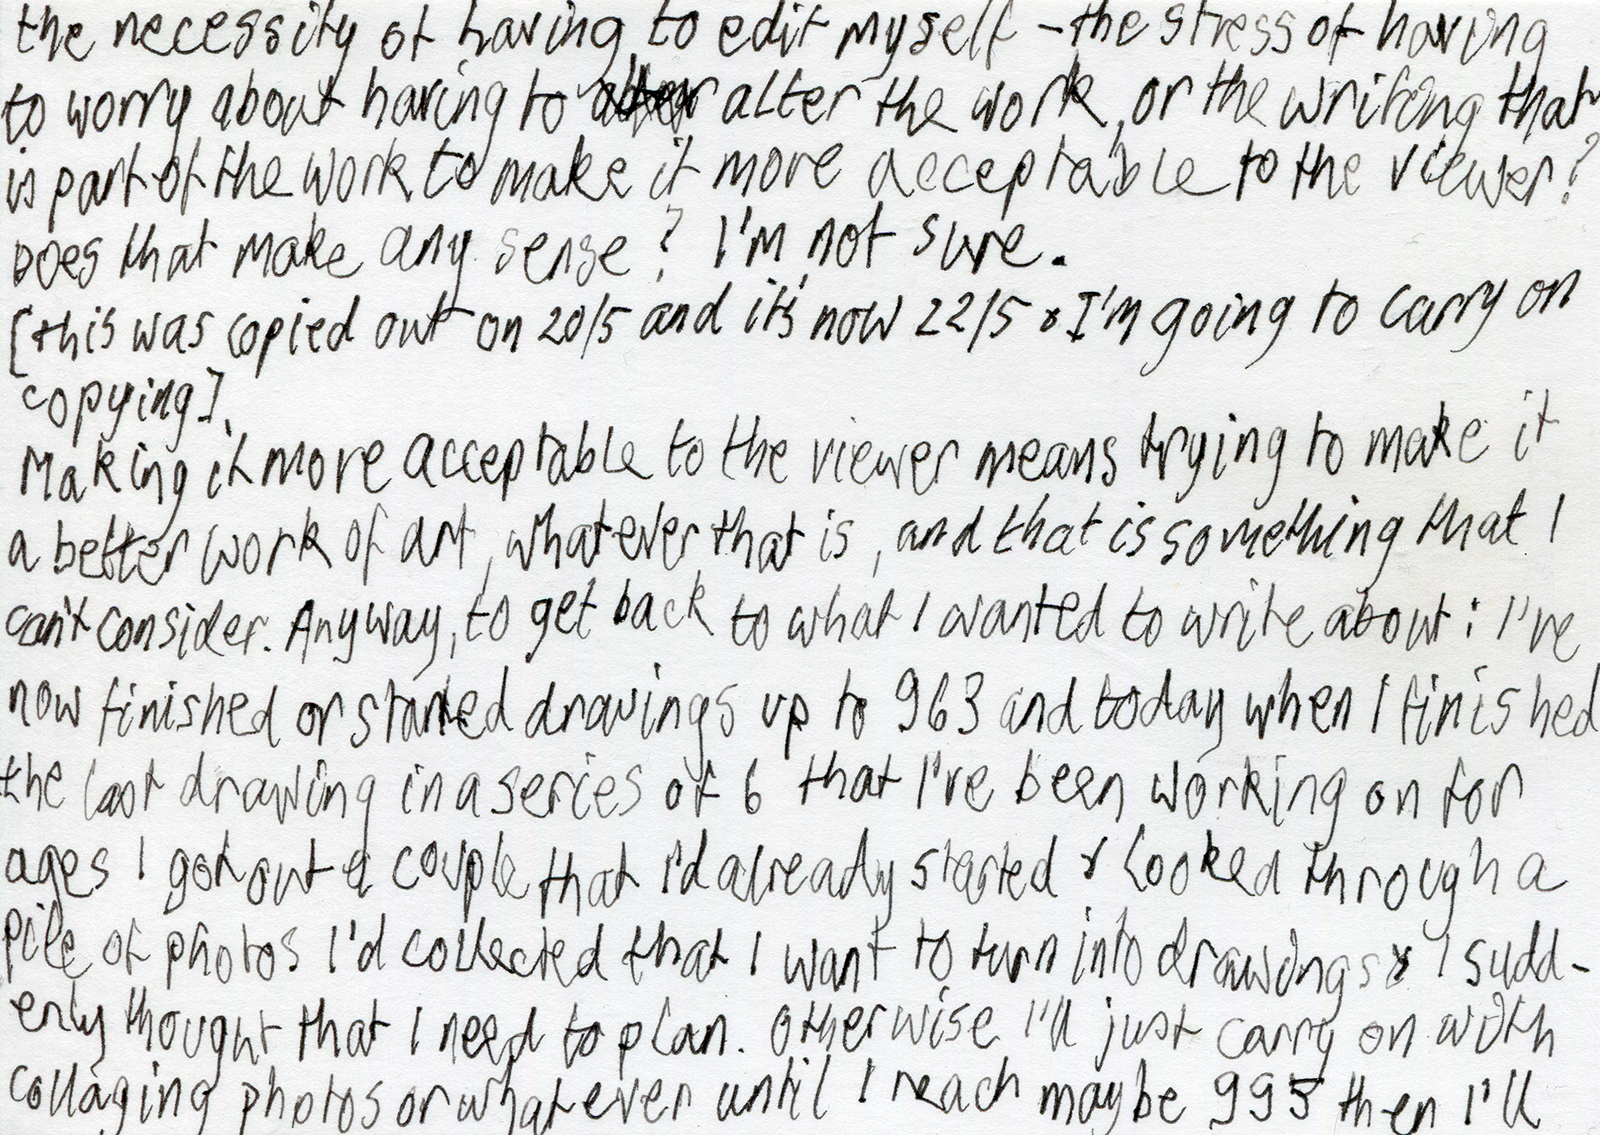 the necessity of having to edit myself - the stress of having
to worry about having to alter alter the work, or the writing that
is part of the work to make it more acceptable to the viewer?
Does that make any sense? I'm not sure.
[this was copied out on 20/5 and it's now 22/5 & I'm going to carry on
copying].
Making it more acceptable to the viewer means trying to make it
a better work of art, whatever that is, and that is something that I
can't consider. Anyway, to get back to what I wanted to write about: I've
now finished or started drawings up to 963 and today when I finished
the last drawing in a series of 6 that I've been working on for
ages I got out a couple that I'd already started & looked through a
pile of photos I'd collected that I want to turn into drawings & I sudd-
enly thought that I need to plan. Otherwise I'll just carry on with
collaging photos or whatever until I reach maybe 995 then I'll